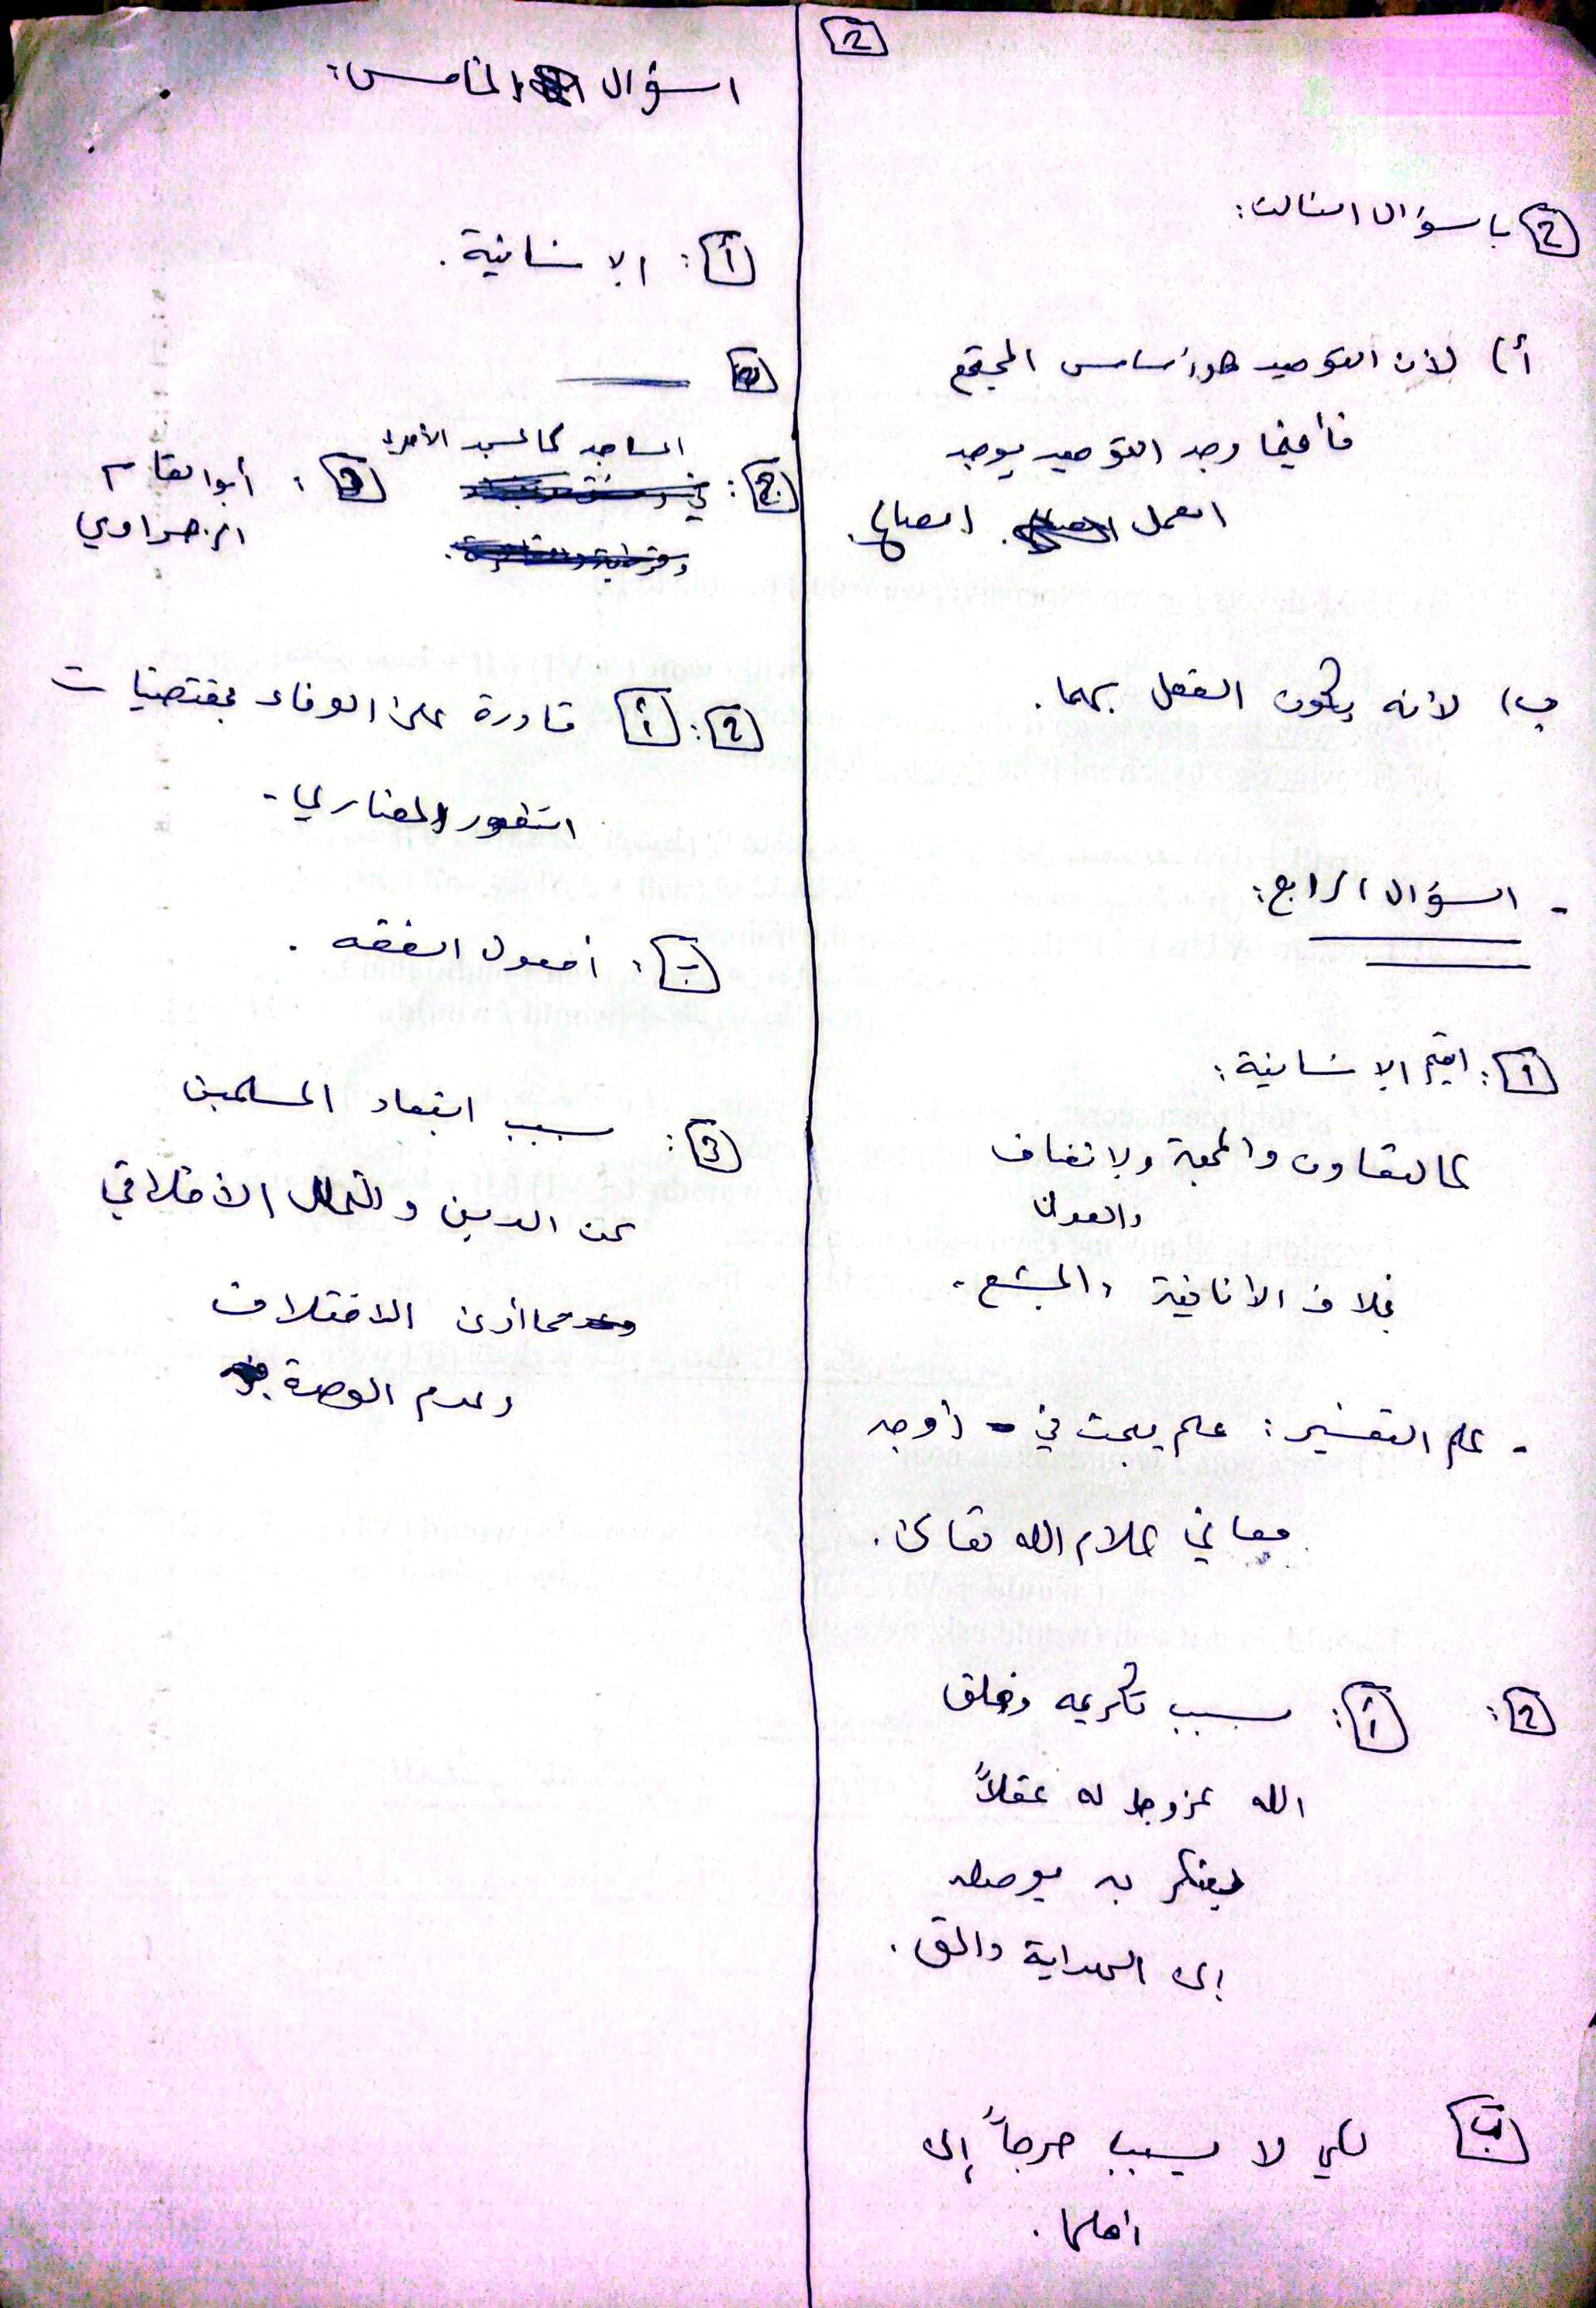 2
2 باسؤال الثالث:
أ) لأن التوحيد هو أساس المجتمع
فأينما وجد التوحيد يوجد
العمل الصالح.
ب) لأنه يكون الفعل بهما.
- السؤال الرابع:
1: القيم الإنسانية:
كالتعاون والمحبة والانصاف
والعدل
بخلاف الانانية والجشع.
- علم التفسير: علم يبحث في أوجه
معاني كلام الله تعالى.
2: أ: بسبب تكريمه وخلق
الله عزوجل له عقلاً
ليفكر به يوصله
إلى الهداية والحق.
ب لكي لا يسبب حرجاً إلى
اهلها.
السؤال الخامس:
أ: الإنسانية.
ب
المساجد كالمسجد الأموي
ج: د: أبو القاسم
الزهراوي
2: أ قادرة على الوفاء بمقتضيات
التطور الحضاري.
ب: أصول الفقه.
3: بسبب ابتعاد المسلمين
عن الدين والتحلل الأخلاقي
مما أدى الاختلاف
وعدم الوحدة.